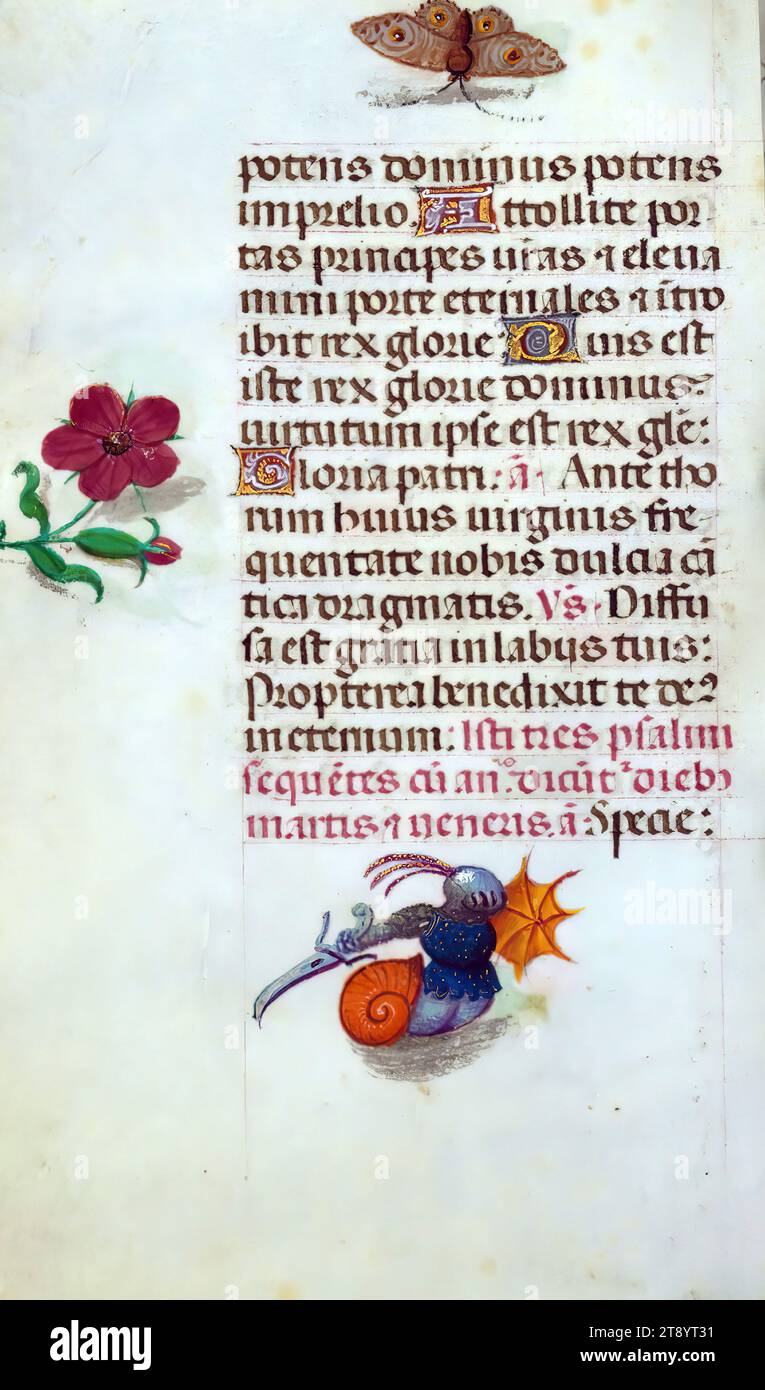 potens dominus potens
in prelio. Attollite por-
tas principes uras ⁊ eleua
mini porte eternales ⁊ ītro
ibit rex glorie Quis est
iste rex glorie dominus
uirtutum ipse est rex glē:
Gloria patri: ā· Ante tho
rum huius uirginis fre-
quentate nobis dulcia cā
tica dragmatis. Vs· Diffu
sa est gratia in labijs tuis:
Propterea benedixit te deꝰ
in eternum: Isti tres psalmi
sequētes cū anᵒ dicūt᷑ dieb᷒
martis ⁊ ueneris. ā: Specie:
alamy
alamy
alamy
Image ID: 2T8YT31
www.alamy.com